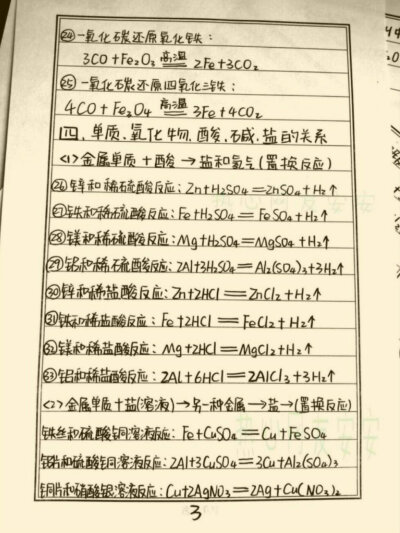 ㉔一氧化碳还原氧化铁：
3CO+Fe₂O₃ 高温══ 2Fe+3CO₂
㉕一氧化碳还原四氧化三铁：
4CO+Fe₃O₄ 高温══ 3Fe+4CO₂
四、单质、氧化物、酸、碱、盐的关系
<1>金属单质+酸→盐和氢气(置换反应)
㉖锌和稀硫酸反应：Zn+H₂SO₄══ZnSO₄+H₂↑
㉗铁和稀硫酸反应：Fe+H₂SO₄══FeSO₄+H₂↑
㉘镁和稀硫酸反应：Mg+H₂SO₄══MgSO₄+H₂↑
㉙铝和稀硫酸反应：2Al+3H₂SO₄══Al₂(SO₄)₃+3H₂↑
㉚锌和稀盐酸反应：Zn+2HCl══ZnCl₂+H₂↑
㉛铁和稀盐酸反应：Fe+2HCl══FeCl₂+H₂↑
㉜镁和稀盐酸反应：Mg+2HCl══MgCl₂+H₂↑
㉝铝和稀盐酸反应：2Al+6HCl══2AlCl₃+3H₂↑
<2>金属单质+盐(溶液)→另一种金属→盐→(置换反应)
铁丝和硫酸铜溶液反应：Fe+CuSO₄══Cu+FeSO₄
铝片和硫酸铜溶液反应：2Al+3CuSO₄══3Cu+Al₂(SO₄)₃
铜片和硝酸银溶液反应：Cu+2AgNO₃══2Ag+Cu(NO₃)₂
3